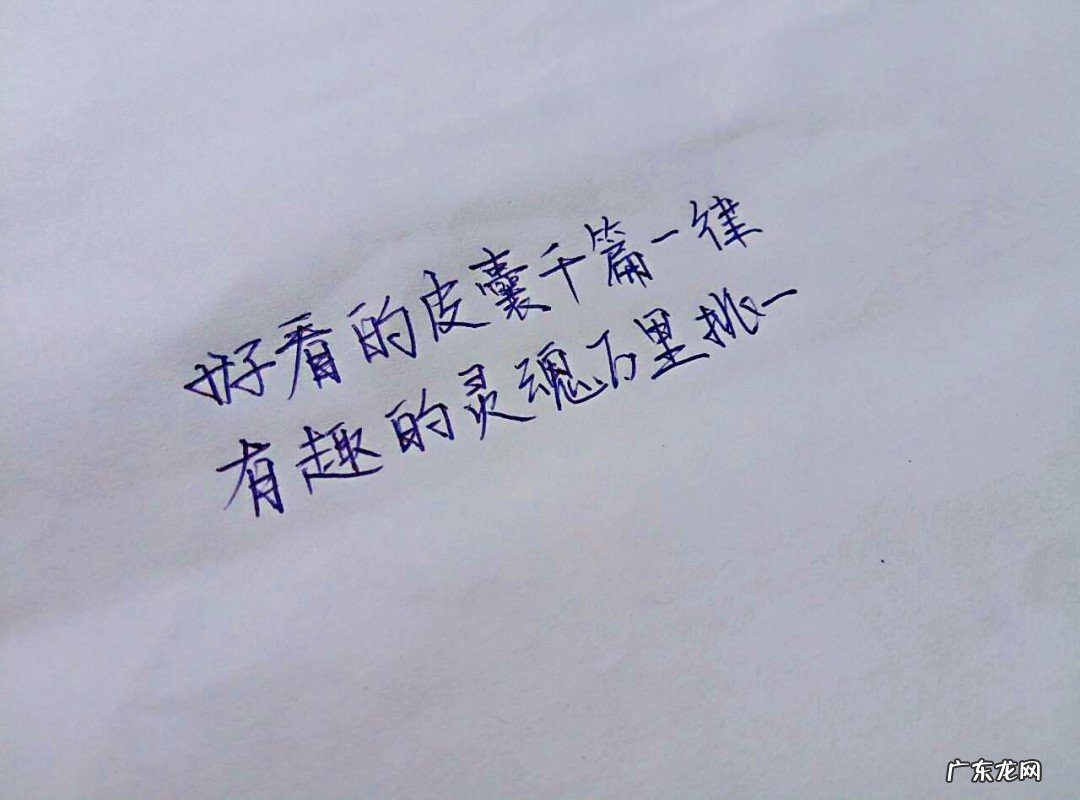 好看的皮囊千篇一律
有趣的灵魂万里挑一
广东龙网